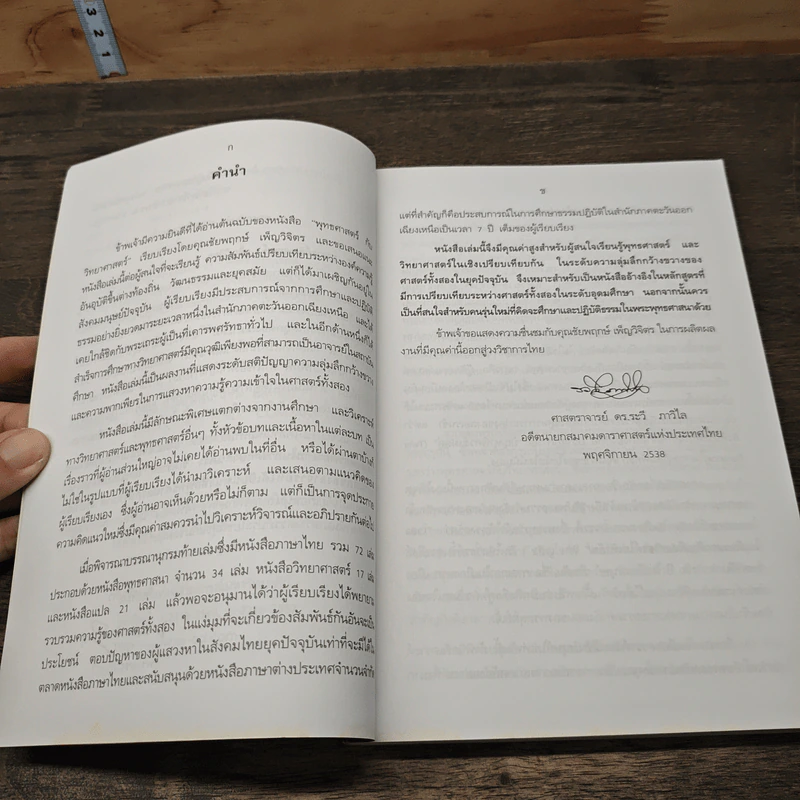 3
2
1
ก
คำนำ
ข้าพเจ้ามีความยินดีที่ได้อ่านต้นฉบับของหนังสือ "พุทธศาสตร์ กับ
วิทยาศาสตร์" เรียบเรียงโดยคุณชัยพฤกษ์ เพ็ญวิจิตร และขอเสนอแนะ
หนังสือเล่มนี้ต่อผู้สนใจที่จะเรียนรู้ ความสัมพันธ์เปรียบเทียบระหว่างองค์ความรู้
อันอุบัติขึ้นต่างท้องถิ่น วัฒนธรรมและยุคสมัย แต่ก็ได้มาเผชิญกันอยู่ใน
สังคมมนุษย์ปัจจุบัน ผู้เรียบเรียงมีประสบการณ์จากการศึกษาและปฏิบัติ
ธรรมอย่างยิ่งยวดมาระยะเวลาหนึ่งในสำนักภาคตะวันออกเฉียงเหนือ และได้
เคยใกล้ชิดกับพระเถระผู้เป็นที่เคารพศรัทธาทั่วไป และในอีกด้านหนึ่งก็ได้
สำเร็จการศึกษาทางวิทยาศาสตร์มีคุณวุฒิเพียงพอที่สามารถเป็นอาจารย์ในสถาบัน
ศึกษา หนังสือเล่มนี้เป็นผลงานที่แสดงระดับสติปัญญาความลุ่มลึกกว้างขวาง
และความพากเพียรในการแสวงหาความรู้ความเข้าใจในศาสตร์ทั้งสอง
หนังสือเล่มนี้มีลักษณะพิเศษแตกต่างจากงานศึกษา และวิเคราะห์
ทางวิทยาศาสตร์และพุทธศาสตร์อื่นๆ ทั้งหัวข้อบทและเนื้อหาในแต่ละบท เป็น
เรื่องราวที่ผู้อ่านส่วนใหญ่อาจไม่เคยได้อ่านพบในที่อื่น หรือได้ผ่านตาบ้างก็
ไม่ใช่ในรูปแบบที่ผู้เรียบเรียงได้นำมาวิเคราะห์ และเสนอตามแนวคิดของ
ผู้เรียบเรียงเอง ซึ่งผู้อ่านอาจเห็นด้วยหรือไม่ก็ตาม แต่ก็เป็นการจุดประกาย
ความคิดแนวใหม่ซึ่งมีคุณค่าสมควรนำไปวิเคราะห์วิจารณ์และอภิปรายกันต่อไป
เมื่อพิจารณาบรรณานุกรมท้ายเล่มซึ่งมีหนังสือภาษาไทย รวม 72 เล่ม
ประกอบด้วยหนังสือพุทธศาสนา จำนวน 34 เล่ม หนังสือวิทยาศาสตร์ 17 เล่ม
และหนังสือแปล 21 เล่ม แล้วพอจะอนุมานได้ว่าผู้เรียบเรียงได้พยายาม
รวบรวมความรู้ของศาสตร์ทั้งสอง ในแง่มุมที่จะเกี่ยวข้องสัมพันธ์กันอันจะเป็น
ประโยชน์ ตอบปัญหาของผู้แสวงหาในสังคมไทยยุคปัจจุบันเท่าที่จะมีได้ใน
ตลาดหนังสือภาษาไทยและสนับสนุนด้วยหนังสือภาษาต่างประเทศจำนวน
ข
แต่ที่สำคัญก็คือประสบการณ์ในการศึกษาธรรมปฏิบัติในสำนักภาคตะวันออก
เฉียงเหนือเป็นเวลา 7 ปี เต็มของผู้เรียบเรียง
หนังสือเล่มนี้จึงมีคุณค่าสูงสำหรับผู้สนใจเรียนรู้พุทธศาสตร์ และ
วิทยาศาสตร์ในเชิงเปรียบเทียบกัน ในระดับความลุ่มลึกกว้างขวางของ
ศาสตร์ทั้งสองในยุคปัจจุบัน จึงเหมาะสำหรับเป็นหนังสืออ้างอิงในหลักสูตรที่
มีการเปรียบเทียบระหว่างศาสตร์ทั้งสองในระดับอุดมศึกษา นอกจากนั้นควร
เป็นที่สนใจสำหรับคนรุ่นใหม่ที่คิดจะศึกษาและปฏิบัติธรรมในพระพุทธศาสนาด้วย
ข้าพเจ้าขอแสดงความชื่นชมกับคุณชัยพฤกษ์ เพ็ญวิจิตร ในการผลิตผล
งานที่มีคุณค่านี้ออกสู่วงวิชาการไทย
ศาสตราจารย์ ดร.ระวี ภาวิไล
อดีตนายกสมาคมดาราศาสตร์แห่งประเทศไทย
พฤศจิกายน 2538